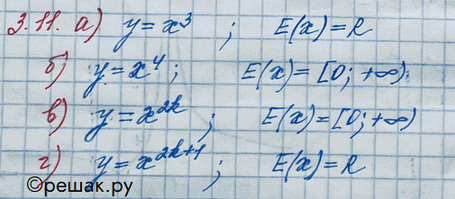 3.11. а) y = x³ ; E(x) = R
б) y = x⁴ ; E(x) = [0; +∞)
в) y = x²ᵏ ; E(x) = [0; +∞)
г) y = x²ᵏ⁺¹ ; E(x) = R
©решак.ру